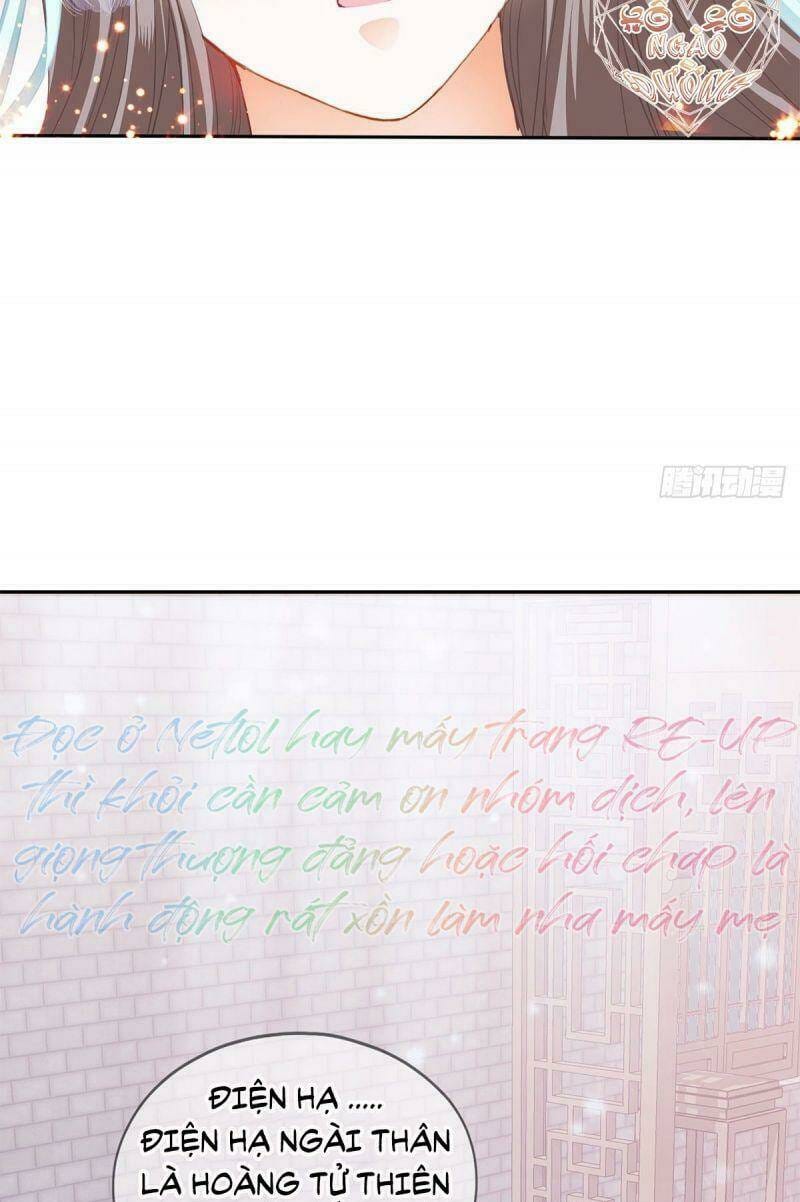 HỒ HỒ
NGÀO
ĐƯỜNG
腾讯动漫
Đọc ở Netlol hay mấy trang RE-UP
thì khỏi cần cảm ơn nhóm dịch, lên
giọng thượng đẳng hoặc hối chap là
hành động rất xồn làm nha mấy mẹ
ĐIỆN HẠ .....
ĐIỆN HẠ NGÀI THÂN
LÀ HOÀNG TỬ THIÊN